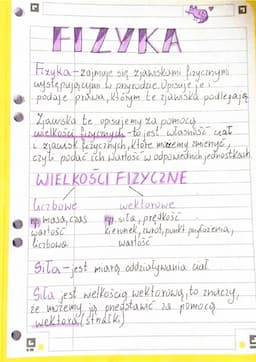 FIZYKA
Fizyka - zajmuje się zjawiskami fizycznymi
występującymi w przyrodzie. Opisuje je i
podaje prawa, którym te zjawiska podlegają
Zjawiska te opisujemy za pomocą
wielkości fizycznych - to jest własność ciał
i zjawisk fizycznych, które możemy zmierzyć,
czyli podać ich wartość w odpowiednich jednostkach
WIELKOŚCI FIZYCZNE
liczbowe wektorowe
np. masa, czas np. siła, prędkość
wartość kierunek, zwrot, punkt przyłożenia,
liczbowa wartość
Siła - jest miarą oddziaływania ciał.
Siła jest wielkością wektorową, to znaczy,
że możemy ją przedstawić za pomocą
wektora (strzałki)